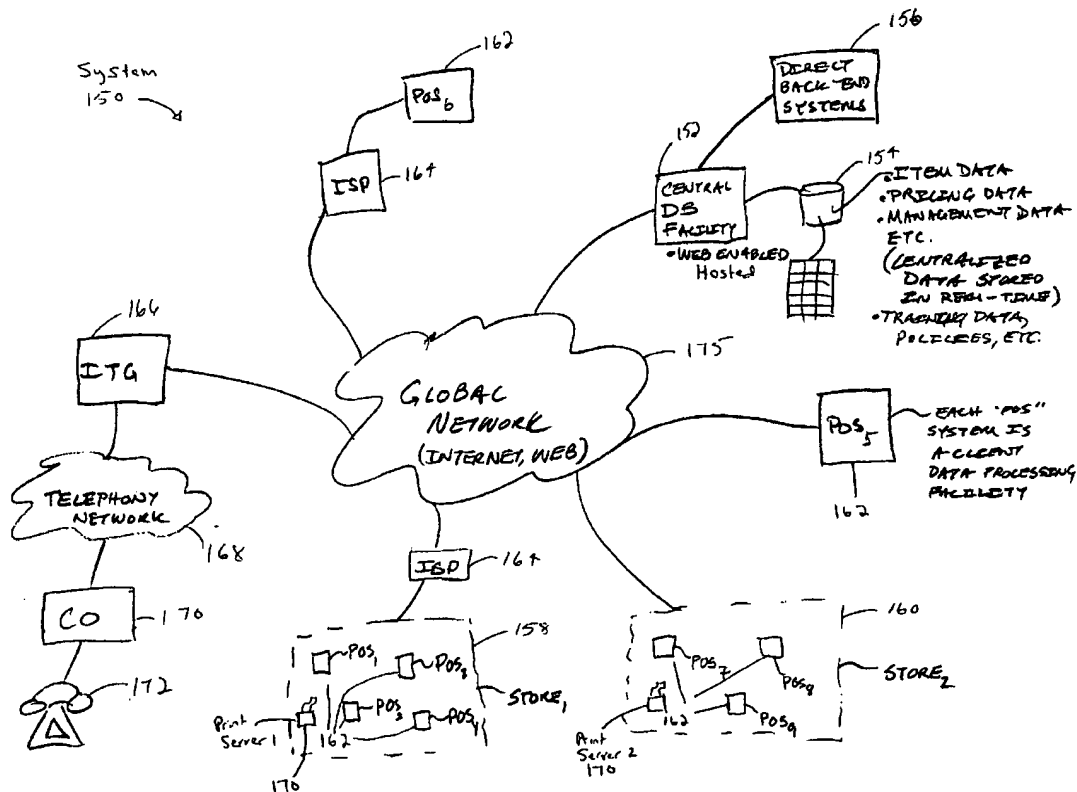 System
150
162
POS6
ISP
164
156
DIRECT
BACK END
SYSTEMS
152
CENTRAL
DB
FACILITY
• WEB ENABLED
Hosted
154
• ITEM DATA
• PRICING DATA
• MANAGEMENT DATA
ETC.
(CENTRALIZED
DATA STORED
IN REAL-TIME)
• TRAINING DATA,
POLICIES, ETC.
166
ITG
175
GLOBAL
NETWORK
(INTERNET, WEB)
POS5
162
EACH "POS"
SYSTEM IS
A CLIENT
DATA PROCESSING
FACILITY
TELEPHONY
NETWORK
168
CO
170
172
ISP
164
158
POS1
POS2
POS3
POS4
STORE1
Print
Server 1
162
170
160
POS7
POS8
POS9
STORE2
Print
Server 2
170
162